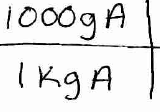 1000g A
1 Kg A